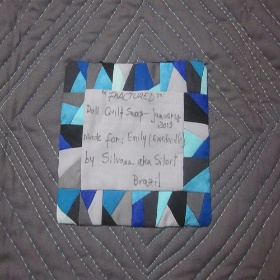 "FRACTURED"
Doll Quilt Swap - January
2013
made for: Emily
by Silvana aka Silori
Brazil